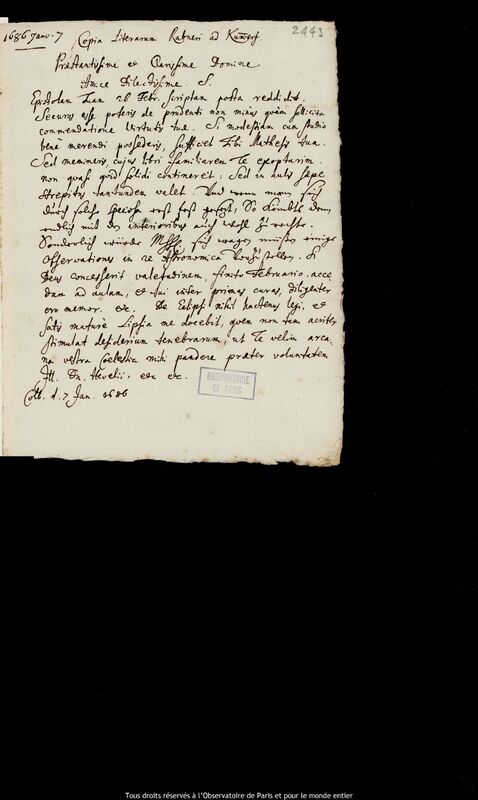 1686 Janv. 7
Copia Literarum Ratneri ad
2443
Præstantissime et Clarissime Domine
Amice Dilectissime S.
Epistolam Tuam 26 Febr. scriptam posta reddidit.
Securus esse poteris de prudenti non minus quàm sollicita
commendatione virtutis tuæ. Si modestiam cum studio
bene merendi possederis, sufficiet Tibi Mathesis tua.
Sed memineris, cujus libri familiarem Te exoptarim
non quasi quid solidi contineret: sed in aulis sæpe
strepitus tantundem valet. Und wenn man sich
durch solche erst fest gesetzt, so kömbts denn
endlich mit den interioribus auch wohl zu rechte.
Sonderlich würde sich wagen müssen einige
Observationes in re Astronomica
Deus concesserit valetudinem, finito Februario acce
dam ad aulam, et tui inter primas curas, diligenter
ero memor. etc. De Eclipsi nihil hactenus legi, et
satis maturè Lipsia me docebit, quem non tam acriter
stimulat desiderium tenebrarum, ut Te velim arca
na vestra Coelestia mihi pandere præter voluntatem
Ill. Dn. Hevelii, etc etc.
d. 7 Jan. 1686
OBSERVATOIRE
DE PARIS
Tous droits réservés à l'Observatoire de Paris et pour le monde entier